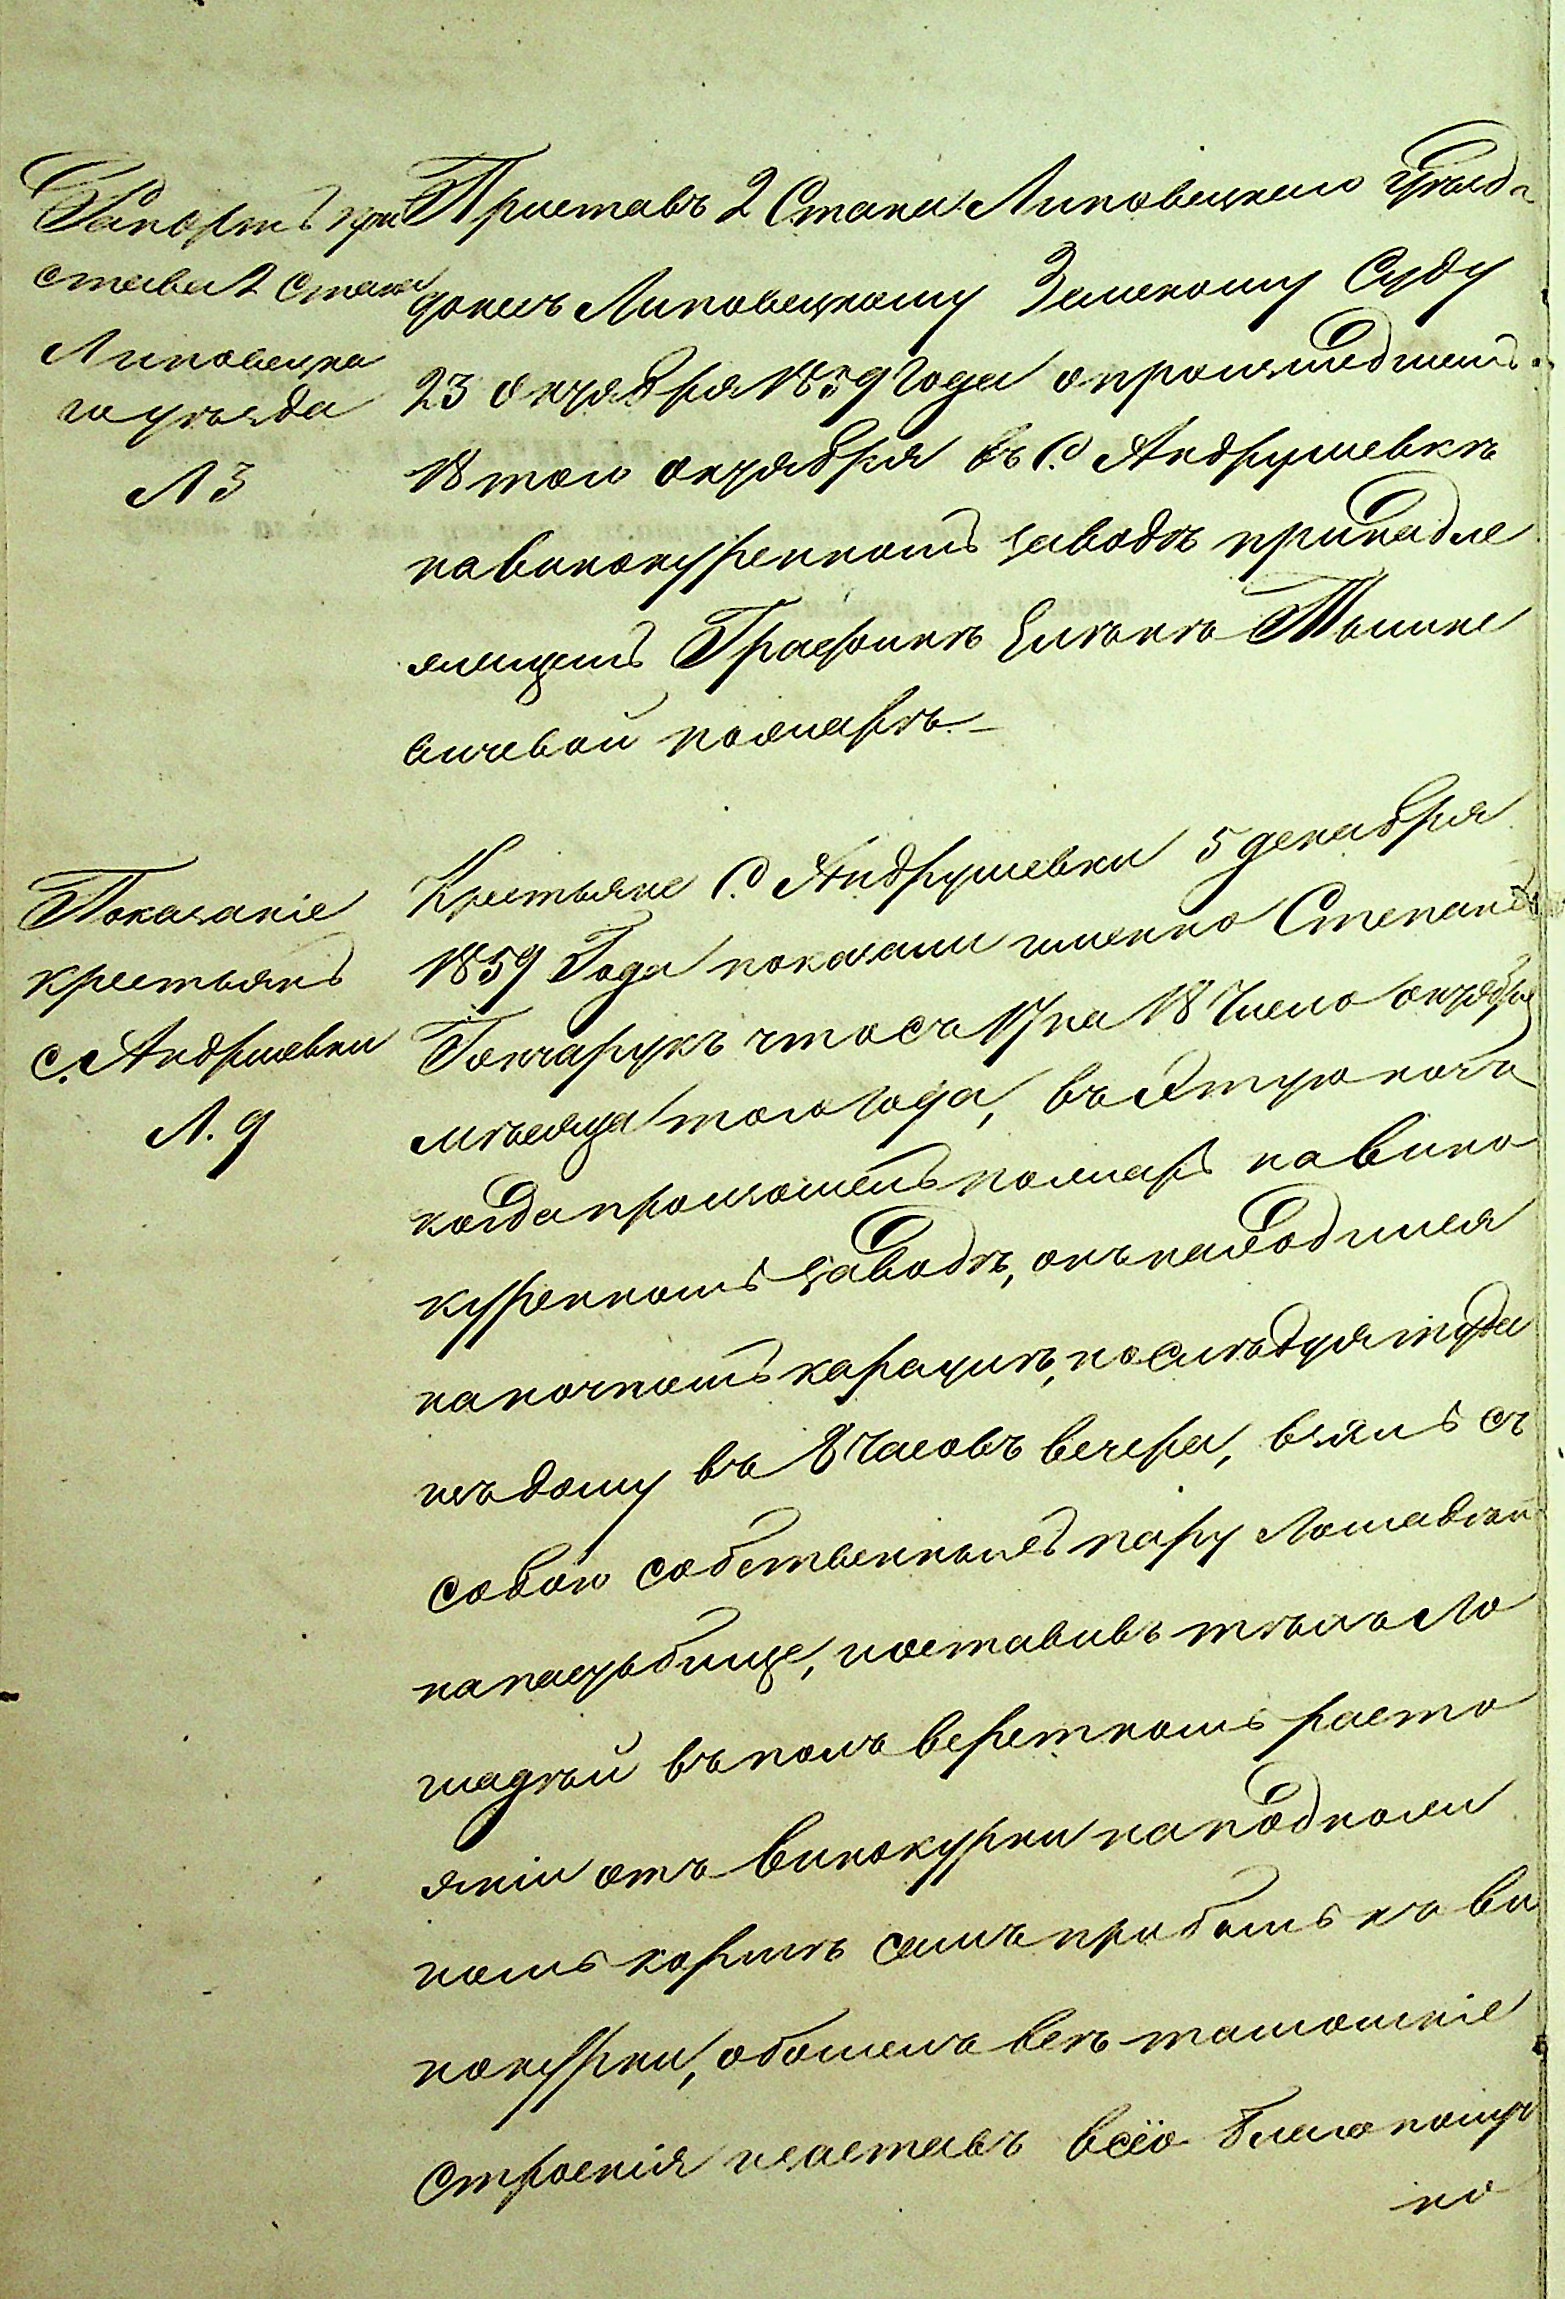 Рапортъ при
става 2 Стана
Липовецка
го уѣзда
Л 3
Приставъ 2 Стана Липовецкаго уѣзда
донесъ Липовецкому Земскому Суду
23 Октября 1859 Года о произшедшемъ
18 того октября въ С. Андрушевкѣ
на винокуренномъ заводѣ принадле
жащемъ Графинѣ Тышке
вичевой пожарѣ. —
Показаніе
крестьянъ
с. Андрушевки
Л. 9
Крестьяне С. Андрушевки 5 декабря
1859 Года показали именно Степанъ
Гончарукъ что съ 17 на 18 Число октября
мѣсяца того года, въ ту ночь
когда произошелъ пожаръ на вино
куренномъ заводѣ, онъ находился
на ночномъ караулѣ, послѣдуя туда
изъ дому въ 8 Часовъ вечера, взялъ съ
собою собственныхъ пару лошадей
на пастьбище, поставивъ тѣхъ ло
шадей въ полъ верстномъ разсто
яніи отъ винокурни на подножи
номъ кормѣ самъ прибылъ къ ви
нокурни, обошелъ всѣ тамошніе
строенія и заставъ всё благополуч
но